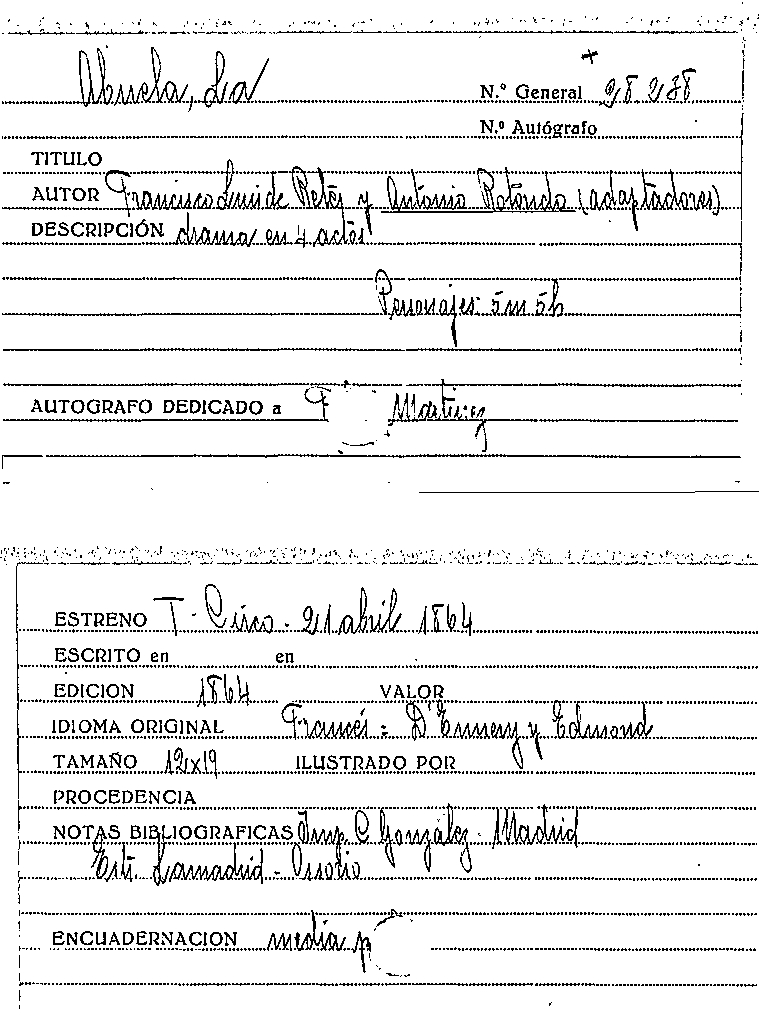 Abuela, La
N.º General 28.238
N.º Autógrafo
TITULO
AUTOR Francisco Luis de Retés y Antonio Rotondo (adaptadores)
DESCRIPCIÓN drama en 4 actos
Personajes: 5m 5h
AUTOGRAFO DEDICADO a F Martinez
ESTRENO T. Circo. 21 abril 1864
ESCRITO en en
EDICION 1864 VALOR
IDIOMA ORIGINAL Francés: D'Ennery y Edmond
TAMAÑO 12x19 ILUSTRADO POR
PROCEDENCIA
NOTAS BIBLIOGRAFICAS Imp. C. González. Madrid
Estr. Lamadrid - Ossorio
ENCUADERNACION media p